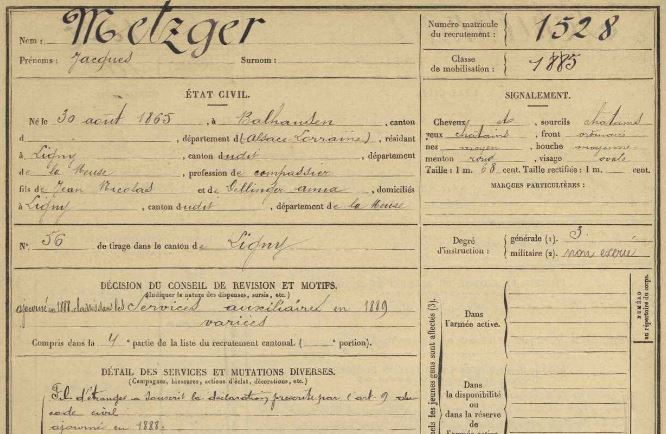 Nom : Metzger
Prénoms : Jacques Surnom :
Numéro matricule du recrutement : 1528
Classe de mobilisation : 1885
ÉTAT CIVIL.
Né le 30 août 1865, à Balhausen, canton
d , département d (Alsace Lorraine), résidant
à Ligny, canton dudit, département
de la Meuse, profession de compassier
fils de Jean Nicolas et de Gettinger Anna, domiciliés
à Ligny, canton dudit, département de la Meuse
SIGNALEMENT.
Cheveux et sourcils chatains
yeux chatains, front ordinaire
nez moyen, bouche moyenne
menton rond, visage ovale
Taille : 1 m. 68 cent. Taille rectifiée : 1 m. cent.
MARQUES PARTICULIÈRES :
N° 56 de tirage dans le canton de Ligny
Degré d'instruction : générale (1). 3.
militaire (2). non exercé
DÉCISION DU CONSEIL DE REVISION ET MOTIFS.
(Indiquer la nature des dispenses, sursis, etc.)
ajourné en 1888, classé dans les Services auxiliaires en 1889
varices
Compris dans la 4e partie de la liste du recrutement cantonal. ( portion).
DÉTAIL DES SERVICES ET MUTATIONS DIVERSES.
(Campagnes, blessures, actions d'éclat, décorations, etc.)
Fils d'étranger a souscrit la déclaration prescrite par (art. 9 du
code civil
ajourné en 1888.
els les jeunes gens sont affectés (3).
Dans
l'armée active.
Dans
la disponibilité
ou
dans la réserve
de
l'armée active
NUMÉRO
au répertoire du corps.